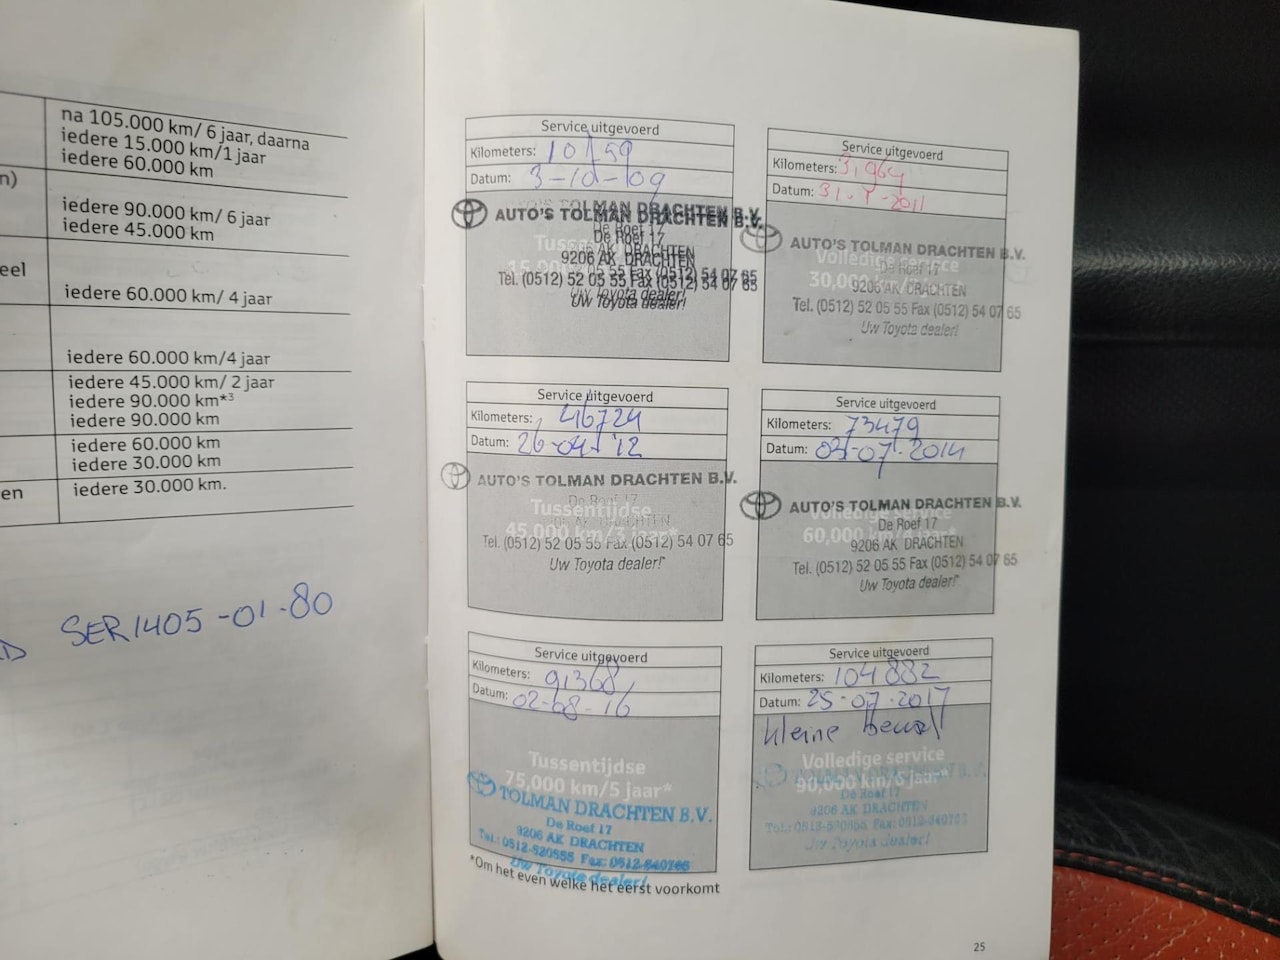 na 105.000 km/ 6 jaar, daarna
iedere 15.000 km/1 jaar
iedere 60.000 km
n)
iedere 90.000 km/ 6 jaar
iedere 45.000 km
eel
iedere 60.000 km/ 4 jaar
iedere 60.000 km/4 jaar
iedere 45.000 km/ 2 jaar
iedere 90.000 km*3
iedere 90.000 km
iedere 60.000 km
iedere 30.000 km
en
iedere 30.000 km.
SER1405-01-80
Service uitgevoerd
Kilometers: 10199
Datum: 3-10-09
AUTO'S TOLMAN DRACHTEN B.V.
De Roef 17
9206 AK DRACHTEN
Tel. (0512) 52 05 55 Fax (0512) 54 07 65
Uw Toyota dealer!
Service uitgevoerd
Kilometers: 31.964
Datum:
AUTO'S TOLMAN DRACHTEN B.V.
Volledige service
De Roef 17
30,000
9206 AK DRACHTEN
Tel. (0512) 52 05 55 Fax (0512) 54 07 65
Uw Toyota dealer!
Service uitgevoerd
Kilometers: 46724
Datum: 26-04-'12
AUTO'S TOLMAN DRACHTEN B.V.
De Roef 17
Tussentijdse
45,000 km/3 jaar*
DRACHTEN
Tel. (0512) 52 05 55 Fax (0512) 54 07 65
Uw Toyota dealer!
Service uitgevoerd
Kilometers: 73479
Datum: 03-07-2014
AUTO'S TOLMAN DRACHTEN B.V.
Volledige service
De Roef 17
60,000 km/
9206 AK DRACHTEN
Tel. (0512) 52 05 55 Fax (0512) 54 07 65
Uw Toyota dealer!
Service uitgevoerd
Kilometers: 91368
Datum: 02-08-16
Tussentijdse
75,000 km/5 jaar*
TOLMAN DRACHTEN B.V.
De Roef 17
9206 AK DRACHTEN
Tel.: 0512-520555 Fax: 0512-540765
Uw Toyota dealer!
Service uitgevoerd
Kilometers: 104882
Datum: 25-07-2017
kleine beurt
Volledige service
TOLMAN DRACHTEN B.V.
90,000 km/6 jaar*
De Roef 17
9206 AK DRACHTEN
Uw Toyota dealer!
*Om het even welke het eerst voorkomt
25